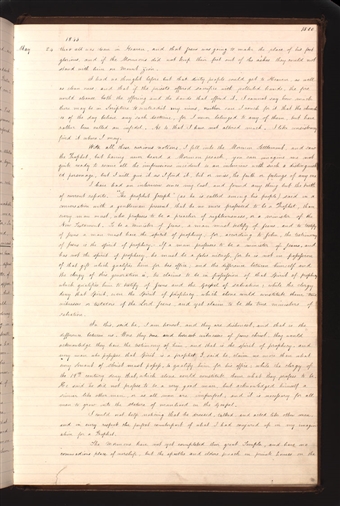 1840
1840
May 24 that all was clean in Heaven, and that Jesus was going to make the place of his feet
glorious, and if the Mormons did not keep their feet out of the ashes they would not
stand with him on Mount Zion.
I had no thought before but that dirty people could get to Heaven as well
as clean ones and that if the priests offered sacrifice with polluted hands, the fire
would cleanse both the offering and the hands that offered it. I cannot say how much
there may be in Scripture to contradict my views,
of the day believe any such doctrine, for I never belonged to any of them, but have
rather been called an infidel. As to that I have not altered much. I like consistency
find it where I may.
With all these curious notions I fell into the Mormon Settlement, and saw
the Prophet, but having never heard a Mormon preach, you may imagine me not
quite ready to record all the impressions incident to an interview with such a distinguish-
ed personage, but I will give it as I find it, hit or miss the faith or feelings of any one.
I have had an interview since my last, and found any thing but the truth
of current reports. "The prophet Joseph" (as he is called among his people) said in a
conversation with a gentleman present that he no more professed to be a Prophet, than
every man must, who professes to be a preacher of righteousness, or a minister of the
New Testament. To be a minister of Jesus, a man must testify of Jesus, and to testify
of Jesus a man must have the spirit of prophecy; for, according to John, the testimony
of Jesus is the spirit of prophecy. If a man professes to be a minister of Jesus, and
has not the spirit of prophecy, he must be a false witness, for he is not in possession
of that gift which qualifies him for his office, and the difference between himself and
the clergy of this generation is, he claims to be in possession of that Spirit of prophecy
which qualifies him to testify of Jesus and the Gospel of Salvation; while the clergy
deny that Spirit, even the Spirit of prophecy, which alone could constitute them true
witnesses or testators of the Lord Jesus, and yet claim to be the true ministers of
salvation.
In this said he, I am honest, and they are dishonest, and that is the
difference between us. Were they true and honest witnesses of Jesus Christ, they would
acknowledge they have the testimony of him, and that is the spirit of prophecy, and
every man who possesses that Spirit, is a prophet. I, said he, claim no more than what
every servant of Christ must possess, to qualify him for his office, while the clergy of
the 19th century deny that, which alone could constitute them what they profess to be.
He said he did not profess to be a very good man, but acknowledged himself a
sinner like other men, or as all men are imperfect, and it is necessary for all
men to grow into the stature of manhood in the Gospel.
I could not help noticing that he dressed, talked, and acted like other men,
and in every respect the perfect counterpart of what I had conjured up in my imagin-
ation for a Prophet.
The Mormons have not yet completed their great Temple, and have no
commodious place of worship, but the apostles and elders preach in private houses on the